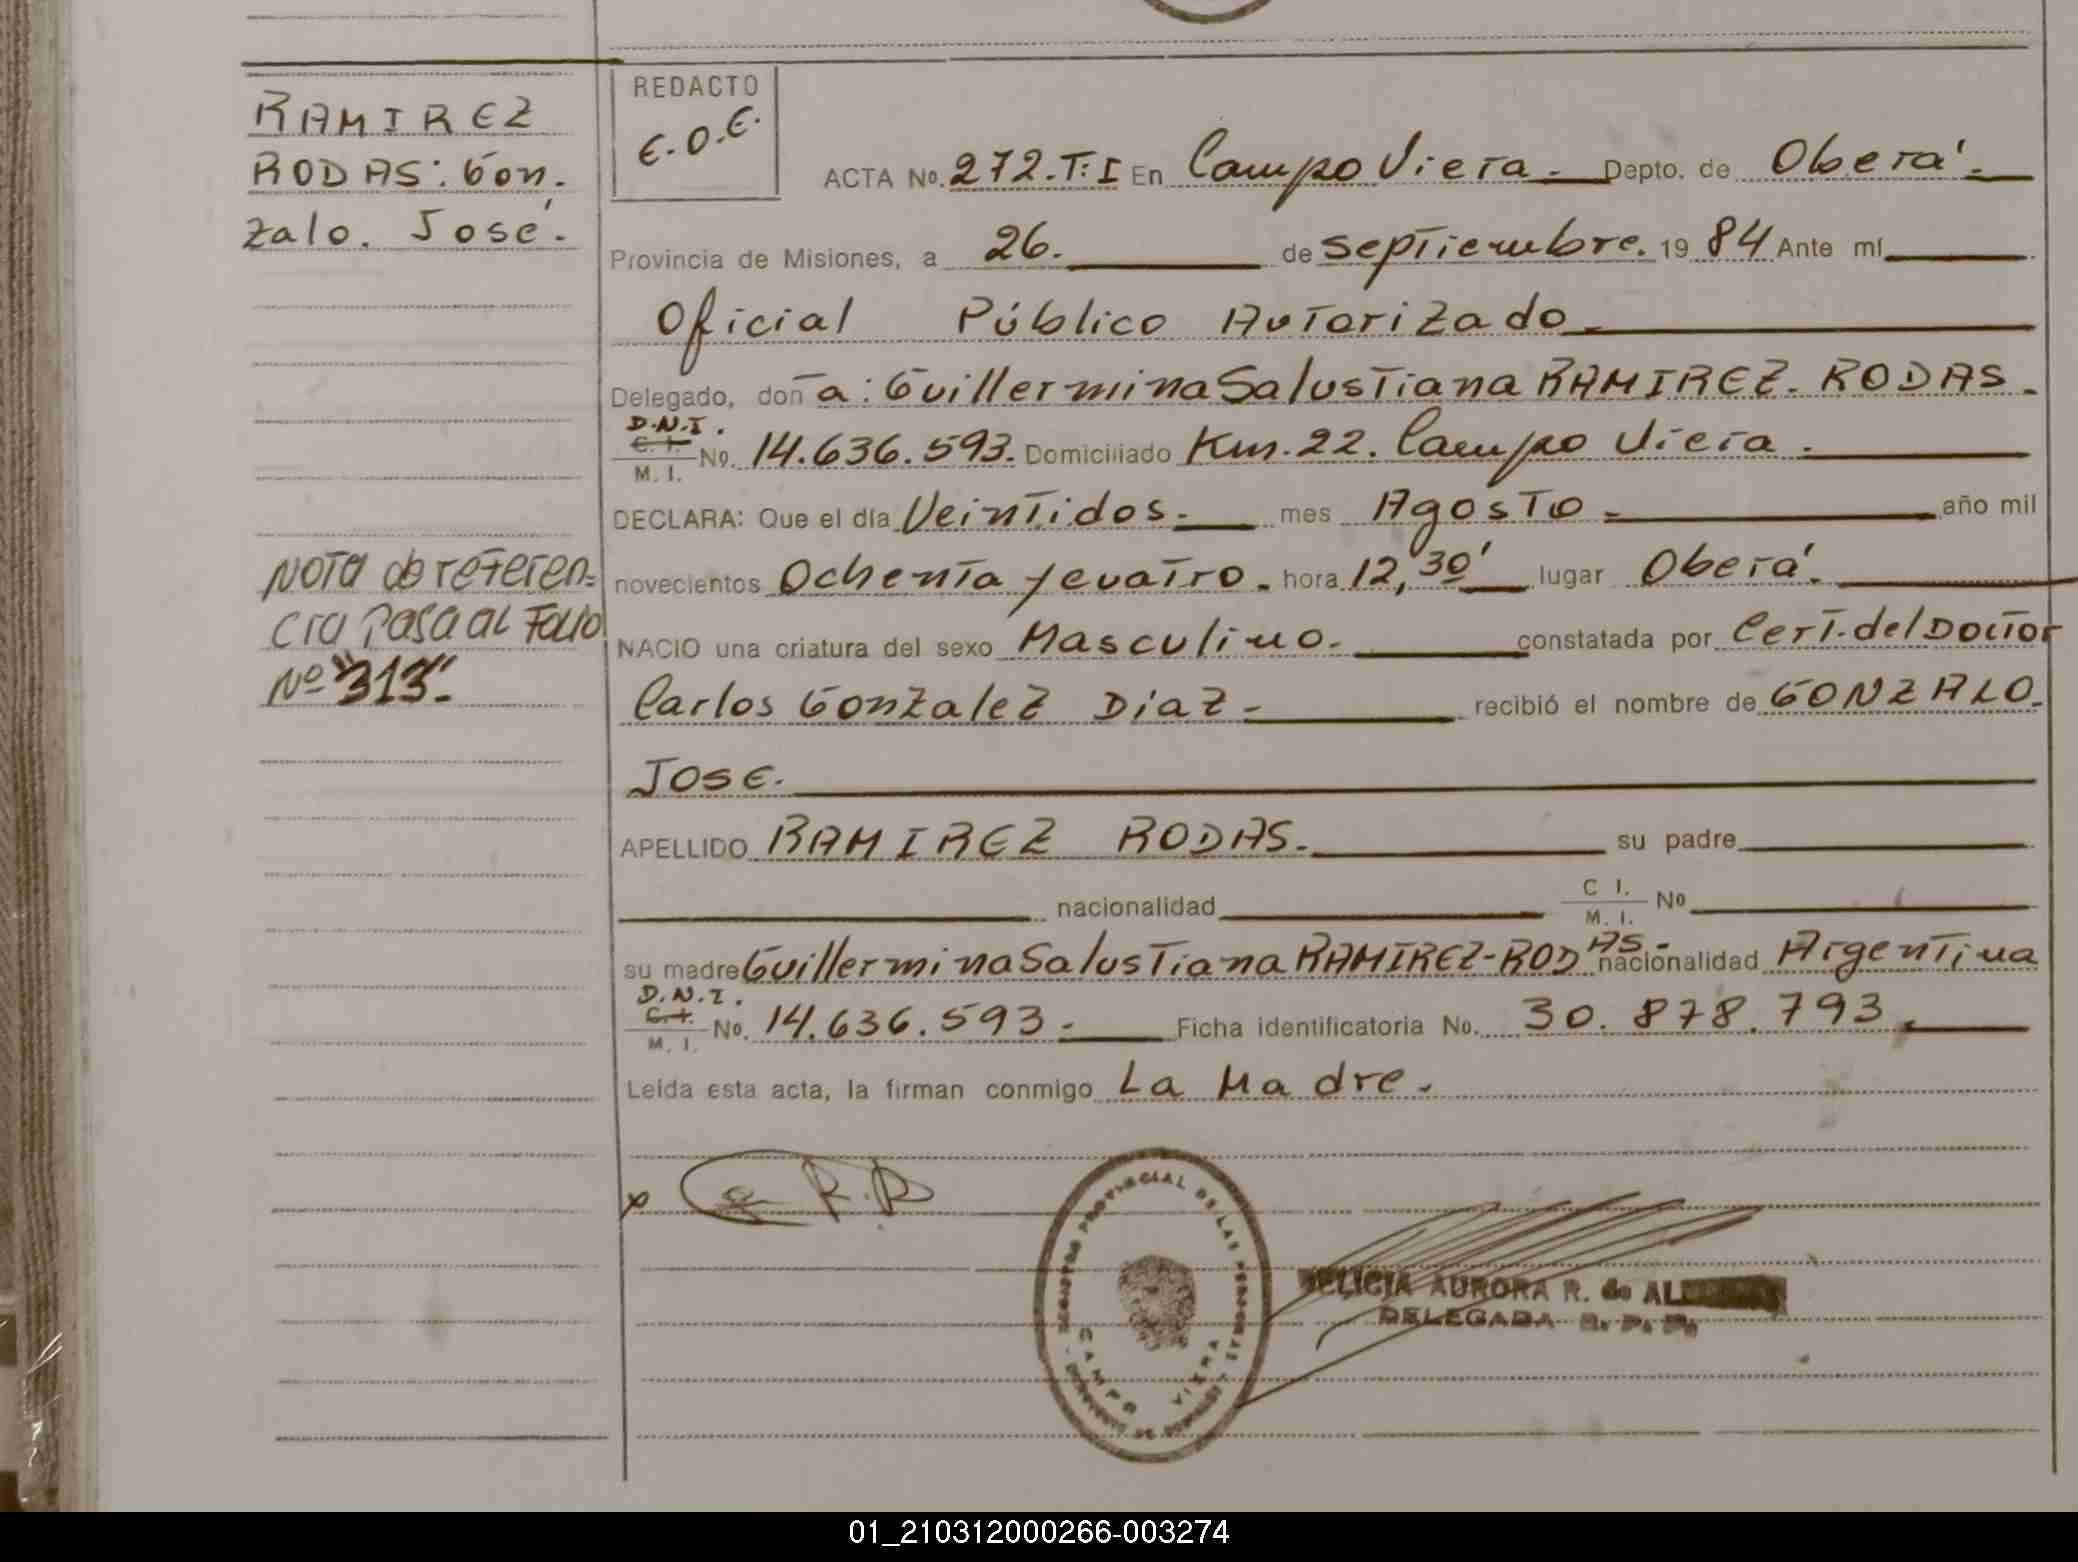 RAMIREZ
RODAS: Gon.
zalo. José.
NOTA de referen=
cia Pasa al Folio
Nº "313".
REDACTO
E.O.E.
ACTA No. 272.T:I En Campo Viera. Depto. de Oberá.
Provincia de Misiones, a 26. de septiembre. 1984 Ante mí
Oficial Público Autorizado.
Delegado, don a: Guillermina Salustiana RAMIREZ. RODAS.
D.N.I.
C. I. / M. I. No. 14.636.593. Domiciliado Km. 22. Campo Viera.
DECLARA: Que el día Veintidos. mes Agosto. año mil
novecientos Ochenta y cuatro. hora 12,30' lugar Oberá.
NACIO una criatura del sexo Masculino. constatada por Cert. del Doctor
Carlos Gonzalez Diaz- recibió el nombre de GONZALO.
JOSE.
APELLIDO RAMIREZ RODAS. su padre
nacionalidad C I. / M. I. No
su madre Guillermina Salustiana RAMIREZ-RODAS- nacionalidad Argentina
D.N.I.
C. I. / M. I. No. 14.636.593. Ficha identificatoria No. 30.878.793.
Leída esta acta, la firman conmigo La Madre.
x R.R
REGISTRO PROVINCIAL DE LAS PERSONAS
CAMPO VIERA
DELICIA AURORA R. de
DELEGADA R. P. P.
01_210312000266-003274